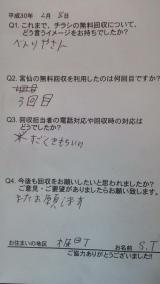 平成30年 2月 8日
Q1.これまで、チラシの無料回収について、
どう言うイメージをお持ちでしたか?
べんりやさん
Q2.宮仙の無料回収を利用したのは何回目ですか?
3回目
Q3.回収担当者の電話対応や回収時の対応は
どうでしたか?
すごくきもちいい
Q4.今後も回収をお願いしたいと思われましたか?
ご意見・ご要望がありましたらお願い致します。
またお願します
お住まいの地区
お名前 S.T
ご協力ありがとうございました!!